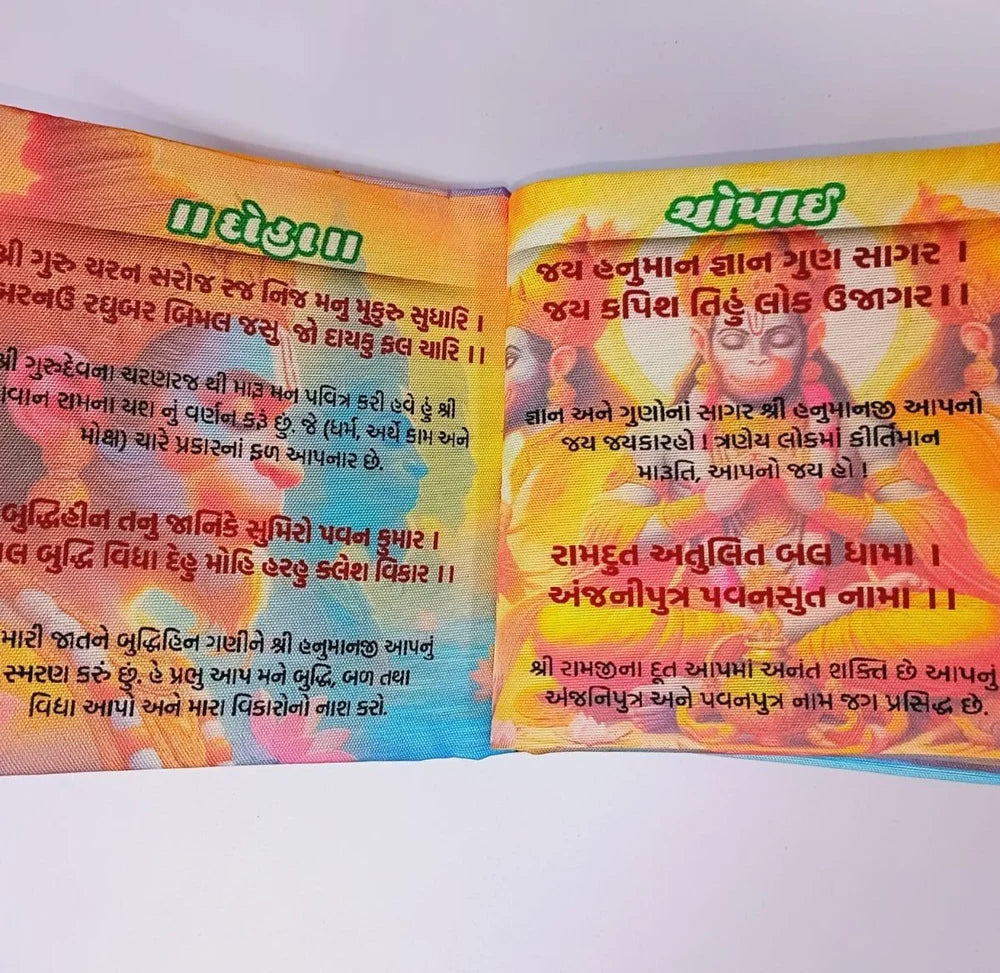 ॥ દોહા ॥
શ્રી ગુરુ ચરન સરોજ રજ નિજ મનુ મુકુરુ સુધારિ ।
બરનઉં રઘુબર બિમલ જસુ જો દાયકુ ફલ ચારિ ।।
શ્રી ગુરુદેવના ચરણરજ થી મારૂ મન પવિત્ર કરી હવે હું શ્રી
રામના યશ નું વર્ણન કરૂ છું. જે (ધર્મ, અર્થ કામ અને
મોક્ષ) ચારે પ્રકારનાં ફળ આપનાર છે.
બુદ્ધિહીન તનુ જાનિકે સુમિરો પવન કુમાર ।
બુદ્ધિ વિદ્યા દેહુ મોહિ હરહુ કલેશ વિકાર ।।
મારી જાતને બુદ્ધિહિન ગણીને શ્રી હનુમાનજી આપનું
સ્મરણ કરું છું. હે પ્રભુ આપ મને બુદ્ધિ, બળ તથા
વિદ્યા આપો અને મારા વિકારોનો નાશ કરો.
ચોપાઈ
જય હનુમાન જ્ઞાન ગુણ સાગર ।
જય કપિશ તિહું લોક ઉજાગર।।
જ્ઞાન અને ગુણોનાં સાગર શ્રી હનુમાનજી આપનો
જય જયકારહો ! ત્રણેય લોકમાં કીર્તિમાન
મારૂતિ, આપનો જય હો !
રામદુત અતુલિત બલ ધામા ।
અંજનીપુત્ર પવનસુત નામા ।।
શ્રી રામજીના દૂત આપમાં અનંત શક્તિ છે આપનું
અંજનિપુત્ર અને પવનપુત્ર નામ જગ પ્રસિદ્ધ છે.